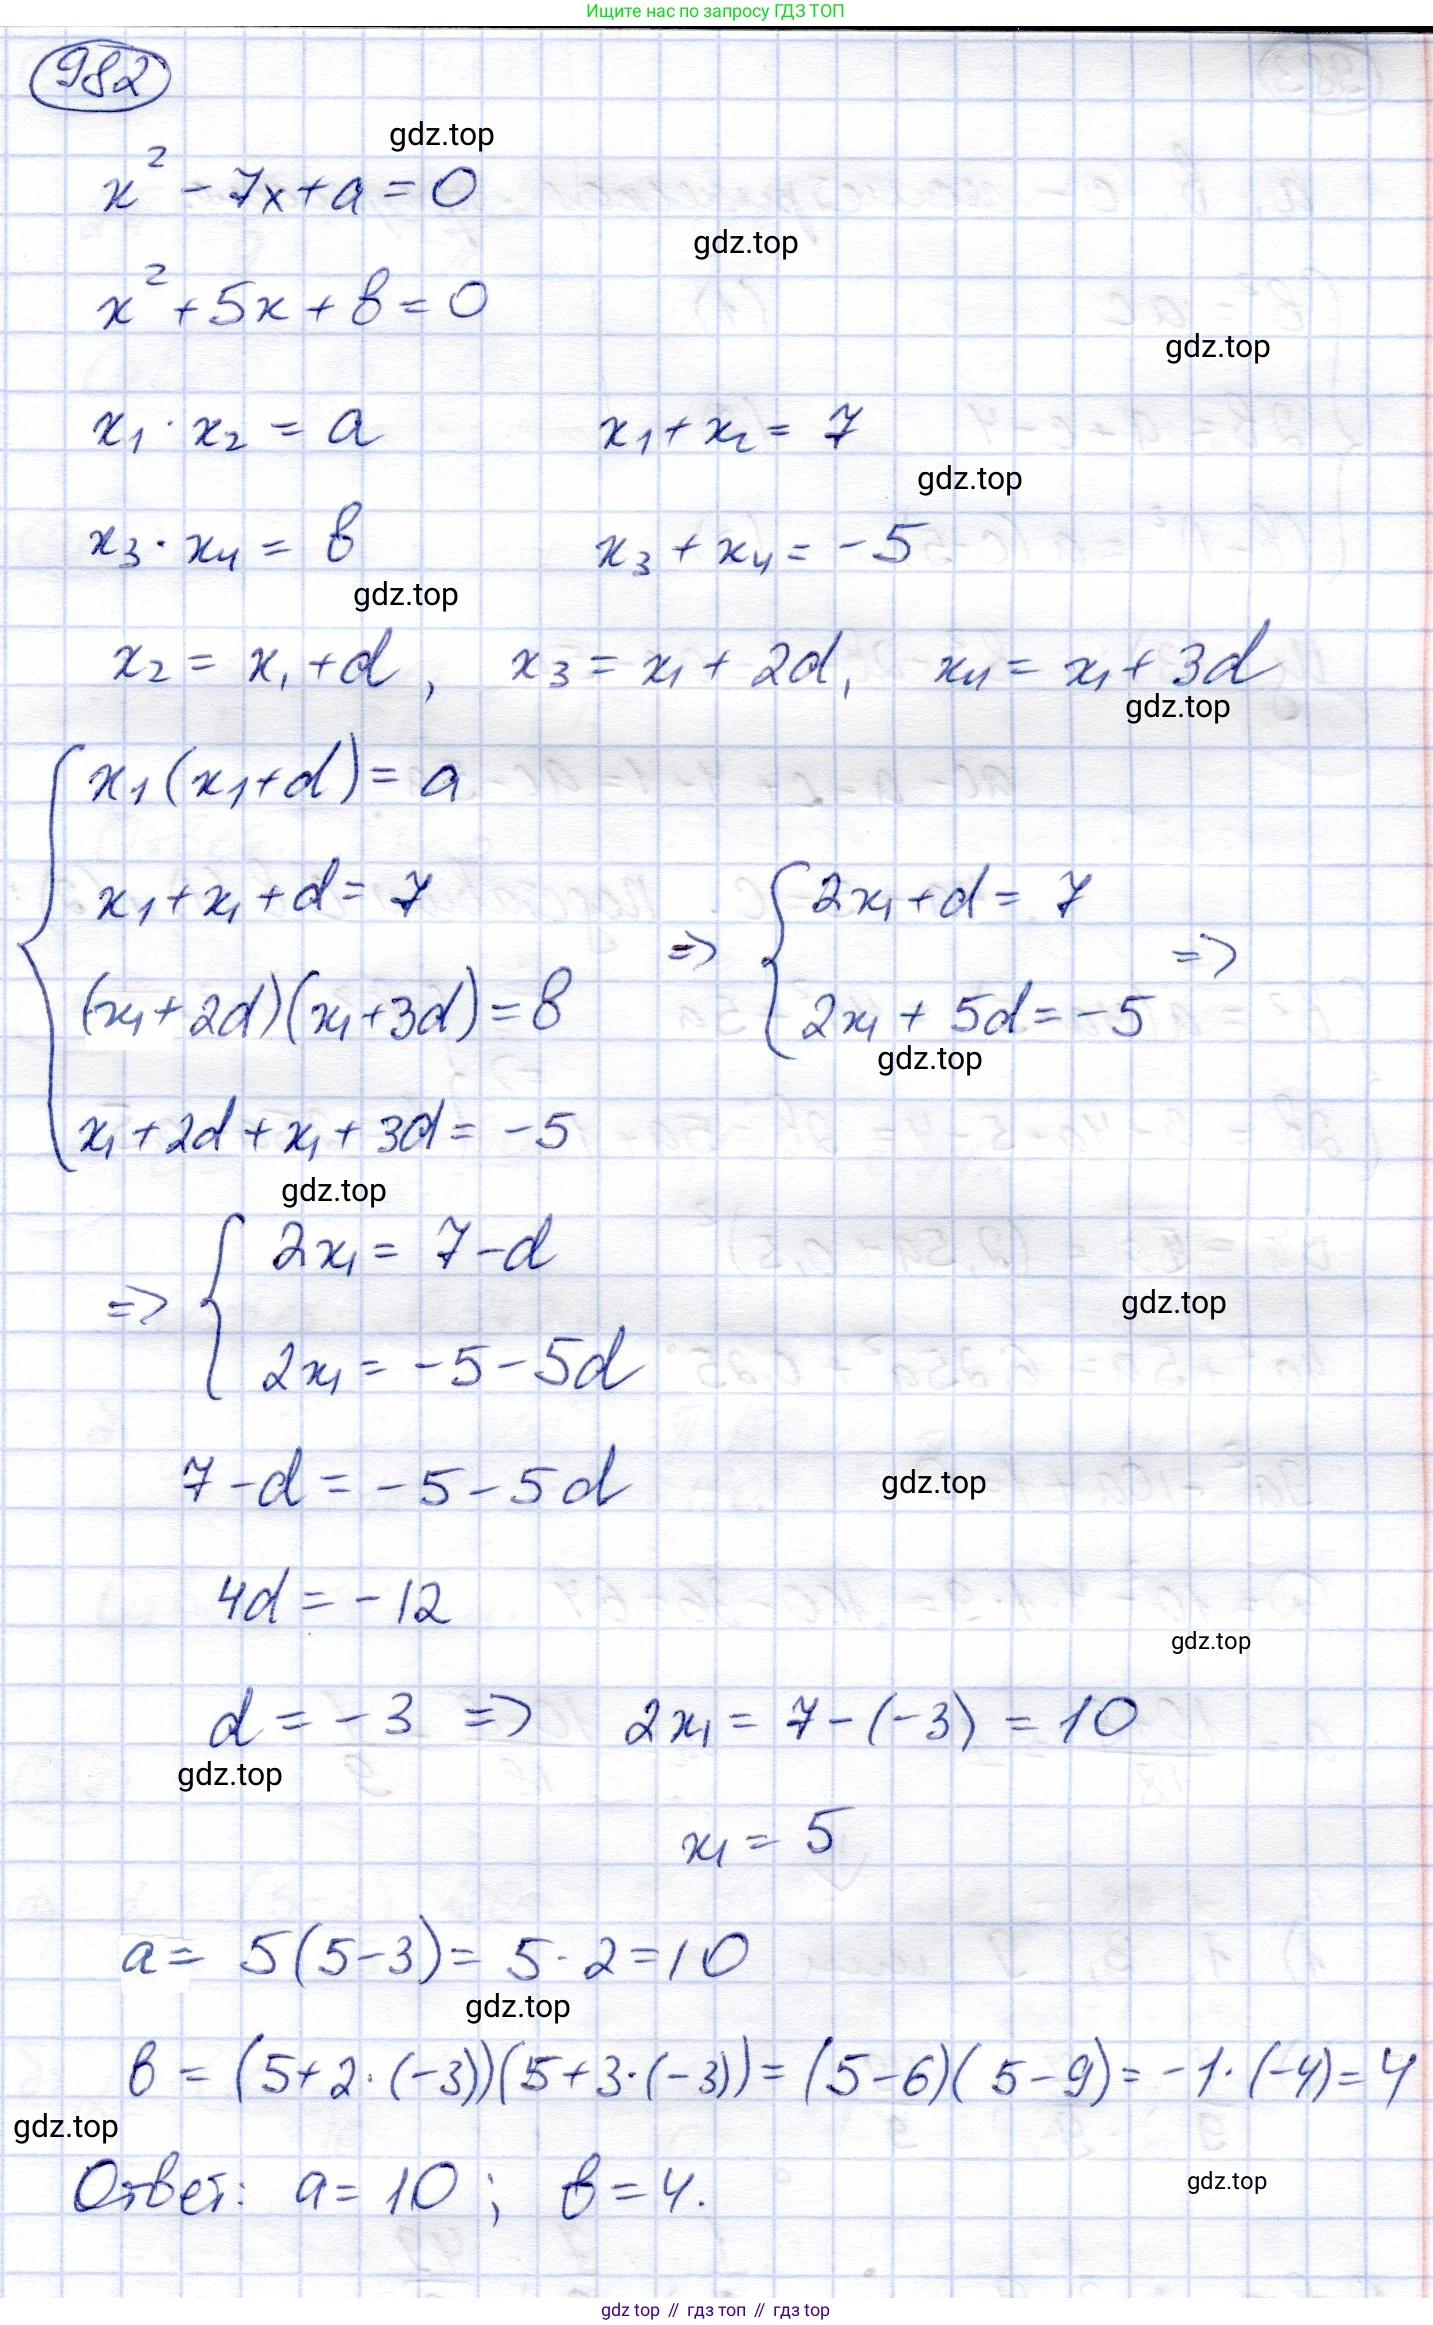 Ищите нас по запросу ГДЗ ТОП
982
gdz.top
x² - 7x + a = 0
gdz.top
x² + 5x + в = 0
gdz.top
x₁ · x₂ = a x₁ + x₂ = 7
gdz.top
x₃ · x₄ = в x₃ + x₄ = -5
gdz.top
x₂ = x₁ + d, x₃ = x₁ + 2d, x₄ = x₁ + 3d
gdz.top
x₁(x₁ + d) = a
x₁ + x₁ + d = 7 => 2x₁ + d = 7 =>
(x₁ + 2d)(x₁ + 3d) = в 2x₁ + 5d = -5
gdz.top
x₁ + 2d + x₁ + 3d = -5
gdz.top
=> 2x₁ = 7 - d
gdz.top
2x₁ = -5 - 5d
7 - d = -5 - 5d
gdz.top
4d = -12
gdz.top
d = -3 => 2x₁ = 7 - (-3) = 10
gdz.top
x₁ = 5
a = 5(5 - 3) = 5 · 2 = 10
gdz.top
в = (5 + 2 · (-3))(5 + 3 · (-3)) = (5 - 6)(5 - 9) = -1 · (-4) = 4
gdz.top
Ответ: a = 10; в = 4.
gdz.top
gdz top // гдз топ // gdz.top